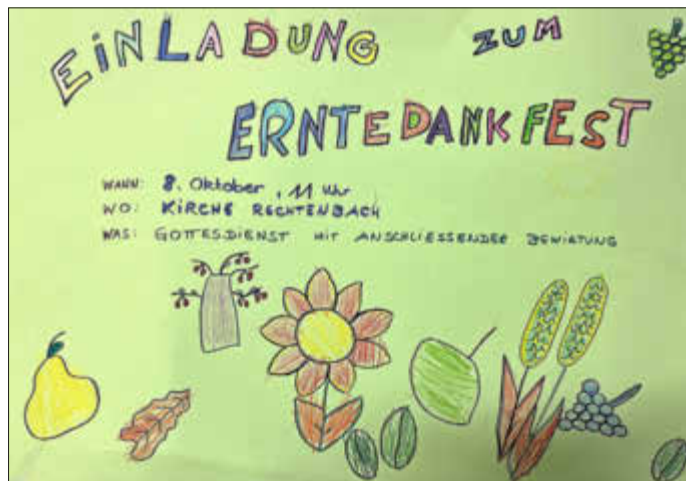 EINLADUNG ZUM
ERNTEDANKFEST
WANN: 8. Oktober, 11 Uhr
WO: KIRCHE RECHTENBACH
WAS: GOTTESDIENST MIT ANSCHLIESSENDER BEWIRTUNG